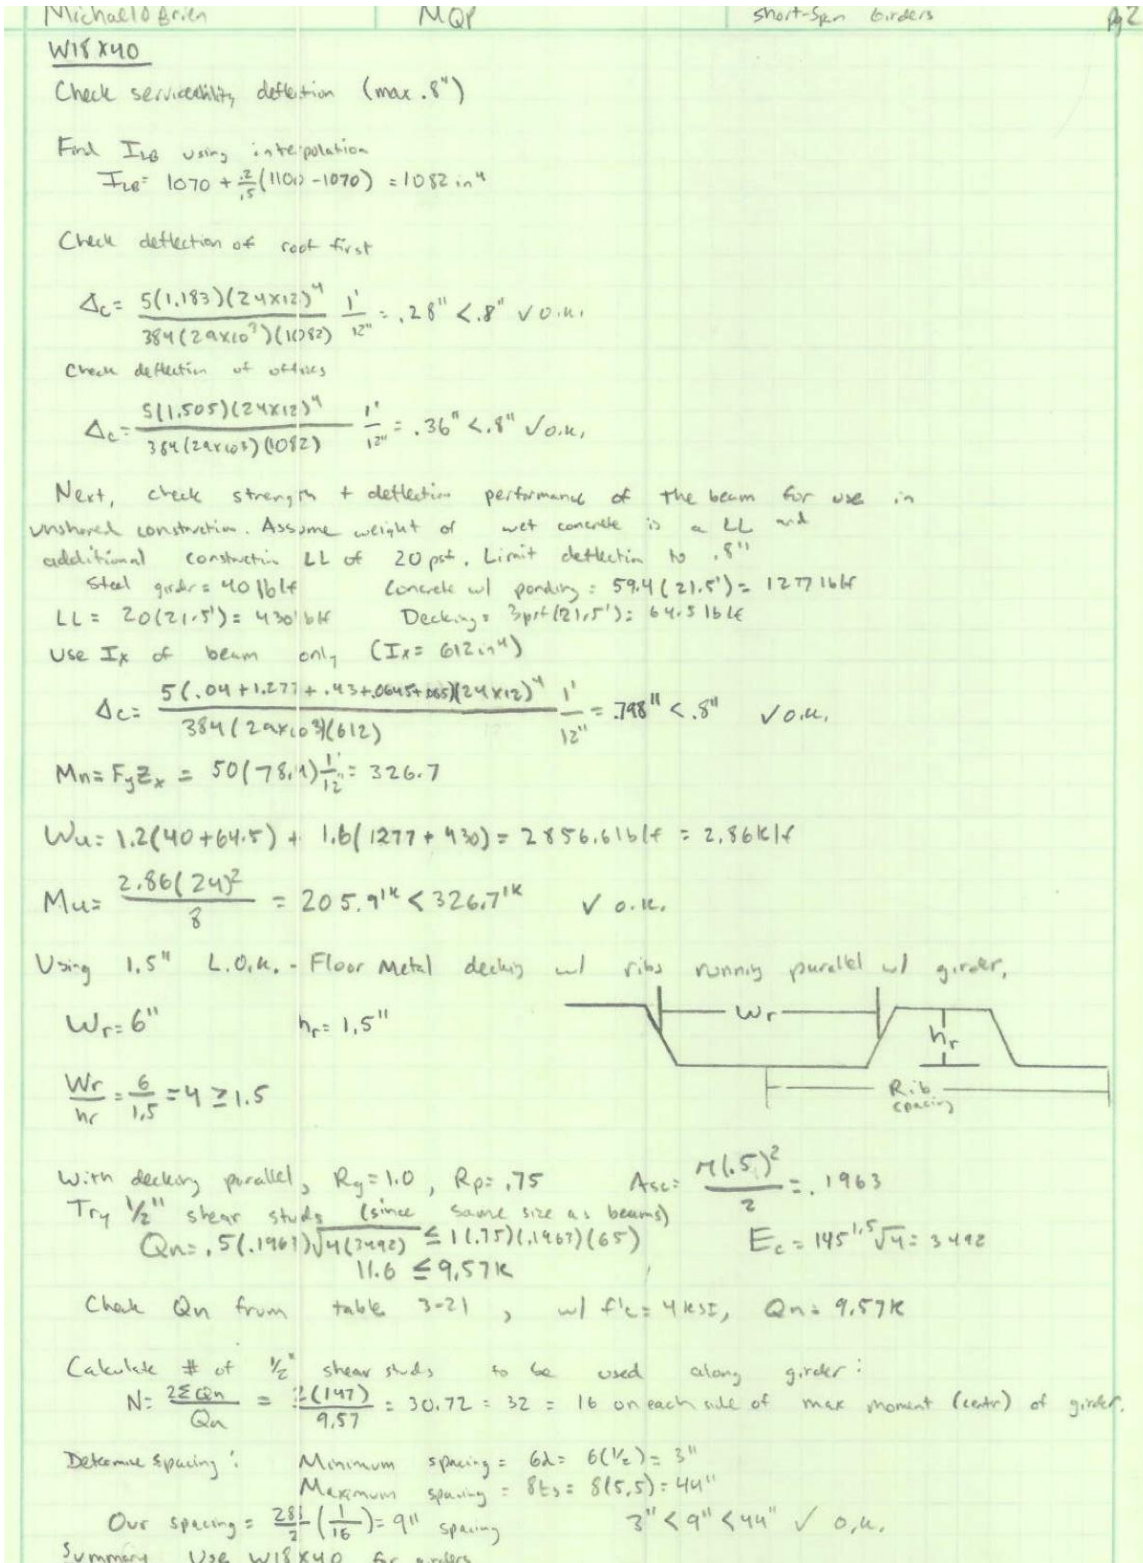 Michael O Brien MQP Short-Span Girders Pg 2
W18X40
Check serviceability deflection (max .8")
Find ILB using interpolation
ILB= 1070 + .2/.5 (1100 -1070) = 1082 in⁴
Check deflection of roof first
Δc= 5(1.183)(24X12)⁴ / 384(29x10³)(1082) 1'/12" = .28" < .8" ✓ O.K.
Check deflection of offices
Δc= 5(1.505)(24X12)⁴ / 384(29x10³)(1082) 1'/12" = .36" < .8" ✓ O.K.
Next, check strength + deflection performance of the beam for use in
unshored construction. Assume weight of wet concrete is a LL and
additional construction LL of 20 psf. Limit deflection to .8"
Steel girder = 40 lb/lf Concrete w/ ponding = 59.4(21.5') = 1277 lb/lf
LL = 20(21.5') = 430 lb/lf Decking = 3psf(21.5') = 64.5 lb/lf
Use Ix of beam only (Ix = 612 in⁴)
Δc= 5(.04+1.277+.43+.0645+.085)(24x12)⁴ / 384(29x10³)(612) 1'/12" = .798" < .8" ✓ o.k.
Mn= FyZx = 50(78.4) 1'/12" = 326.7
Wu= 1.2(40+64.5) + 1.6(1277 + 430) = 2856.6 lb/lf = 2.86k/lf
Mu= 2.86(24)² / 8 = 205.9'k < 326.7'k ✓ o.k.
Using 1.5" L.O.K. - Floor Metal decking w/ ribs running parallel w/ girder.
Wr= 6" hr= 1.5"
Wr
hr
Wr/hr = 6/1.5 = 4 ≥ 1.5
Rib
spacing
With decking parallel, Rg=1.0, Rp= .75 Asc= π(.5)²/2 = .1963
Try 1/2" shear studs (since same size as beams)
Qn= .5(.1963)√4(3492) ≤ 1(.75)(.1963)(65) Ec = 145^1.5 √4 = 3492
11.6 ≤ 9.57k
Check Qn from table 3-21, w/ f'c= 4 KSI, Qn= 9.57K
Calculate # of 1/2" shear studs to be used along girder:
N= 2ΣQn / Qn = 2(147) / 9.57 = 30.72 = 32 = 16 on each side of max moment (centr) of girder.
Determine spacing: Minimum spacing = 6d= 6(1/2)= 3"
Maximum spacing = 8ts = 8(5.5) = 44"
Our spacing = 288/2 (1/16) = 9" spacing 3" < 9" < 44" ✓ o.k.
Summary Use W18X40 for girders